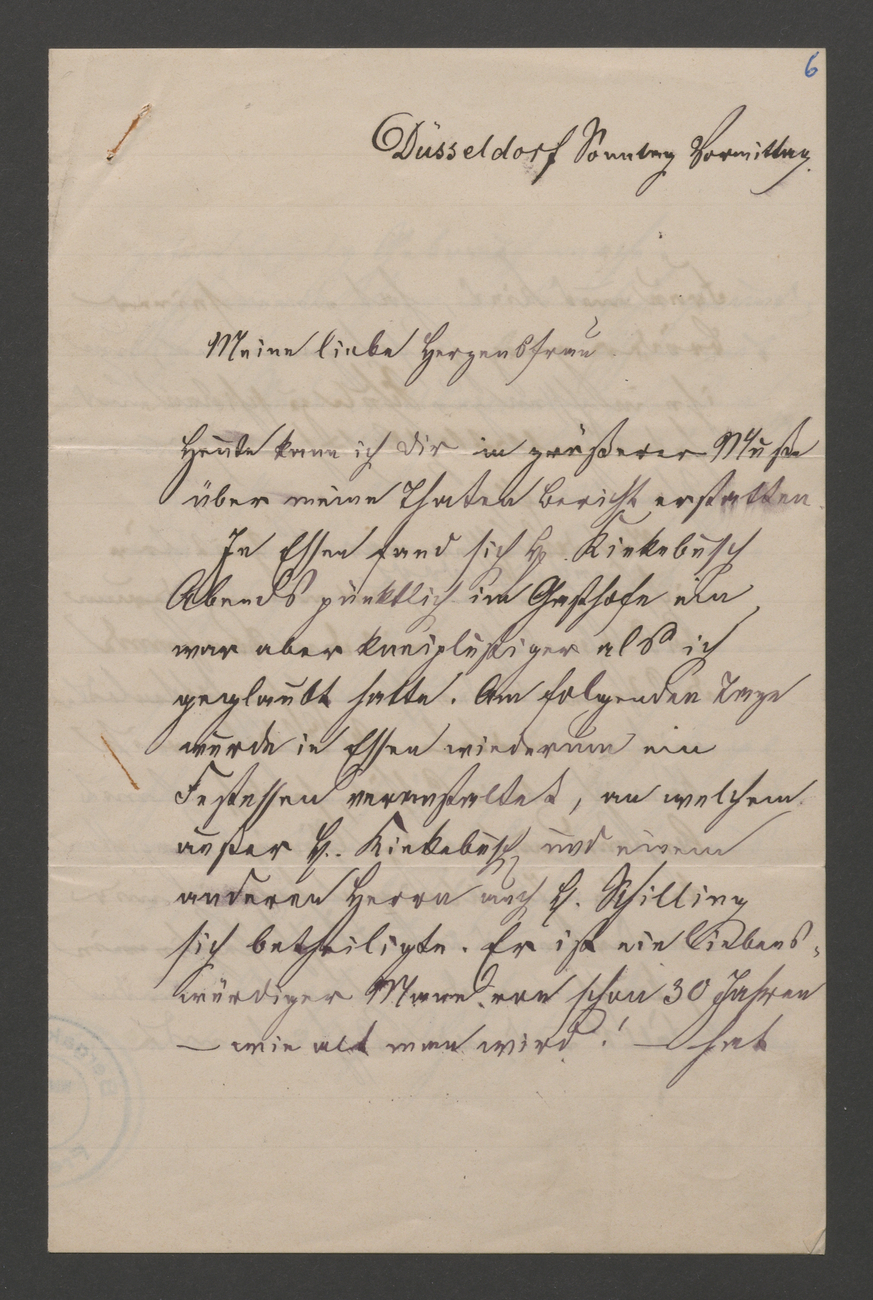 6
Düsseldorf Sonntag Vormittag.
Meine liebe Herzensfrau
Heute kann ich Dir in größerer Muße
über meine Thaten Bericht erstatten.
In Essen fand sich H. Kiekebusch
Abends pünktlich im Gasthofe ein,
war aber kneiplustiger als ich
geglaubt hatte. Am folgenden Tage
wurde in Essen wiederum ein
Festessen veranstaltet, an welchem
außer H. Kiekebusch und einem
anderen Herrn auch H. Schilling
sich betheiligte. Er ist ein liebens-
würdiger Mann von schon 30 Jahren
— wie alt man wird! — hat